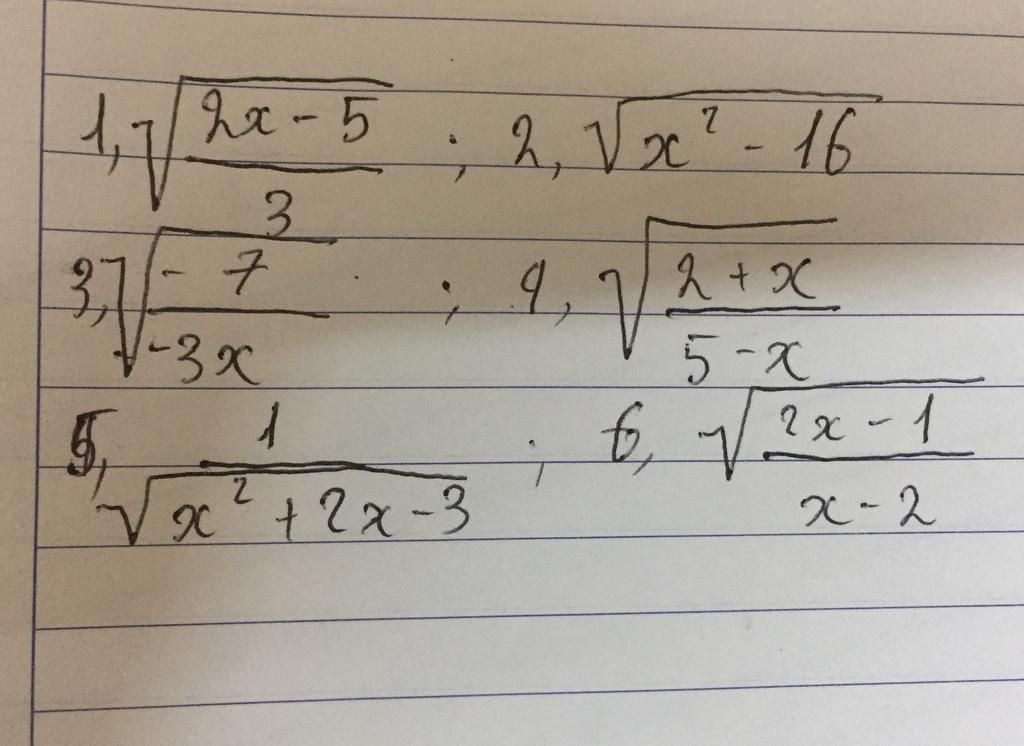 1, √((2x - 5)/3) ; 2, √(x² - 16)
3, √((- 7)/(-3x)) ; 4, √((2 + x)/(5 - x))
5, 1/√(x² + 2x - 3) ; 6, √((2x - 1)/(x - 2))